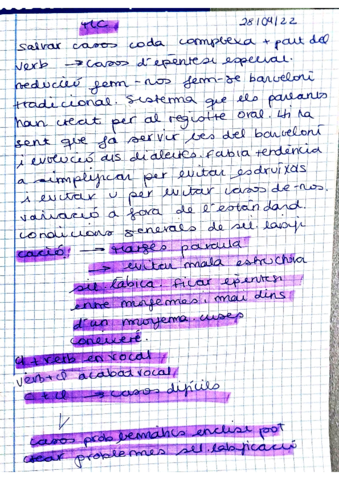 TLC 28/04/22
salvar casos coda complexa + part del
verb → casos d'epentesi especial.
reducció fem-nos fem-se barceloní
tradicional. Sistema que els parlants
han creat per al registre oral. Hi ha
gent que fa servir les del barceloní
i evolució dels dialectes. Fabra tendència
a simplificar per evitar esdrúixas
i evitar u per evitar casos de-nos.
variació a fora de l'estàndard.
condicions generals de sil.labifi
cació: → marges paraula
→ evitar mala estructura
sil.làbica. ficar epèntesi
entre morfemes, mai dins
d'un morfema
cl + verb en vocal
verb + cl acabat vocal
cl + cl → casos difícils
casos problemàtics enclisi pot
crear problemes sil.labificació